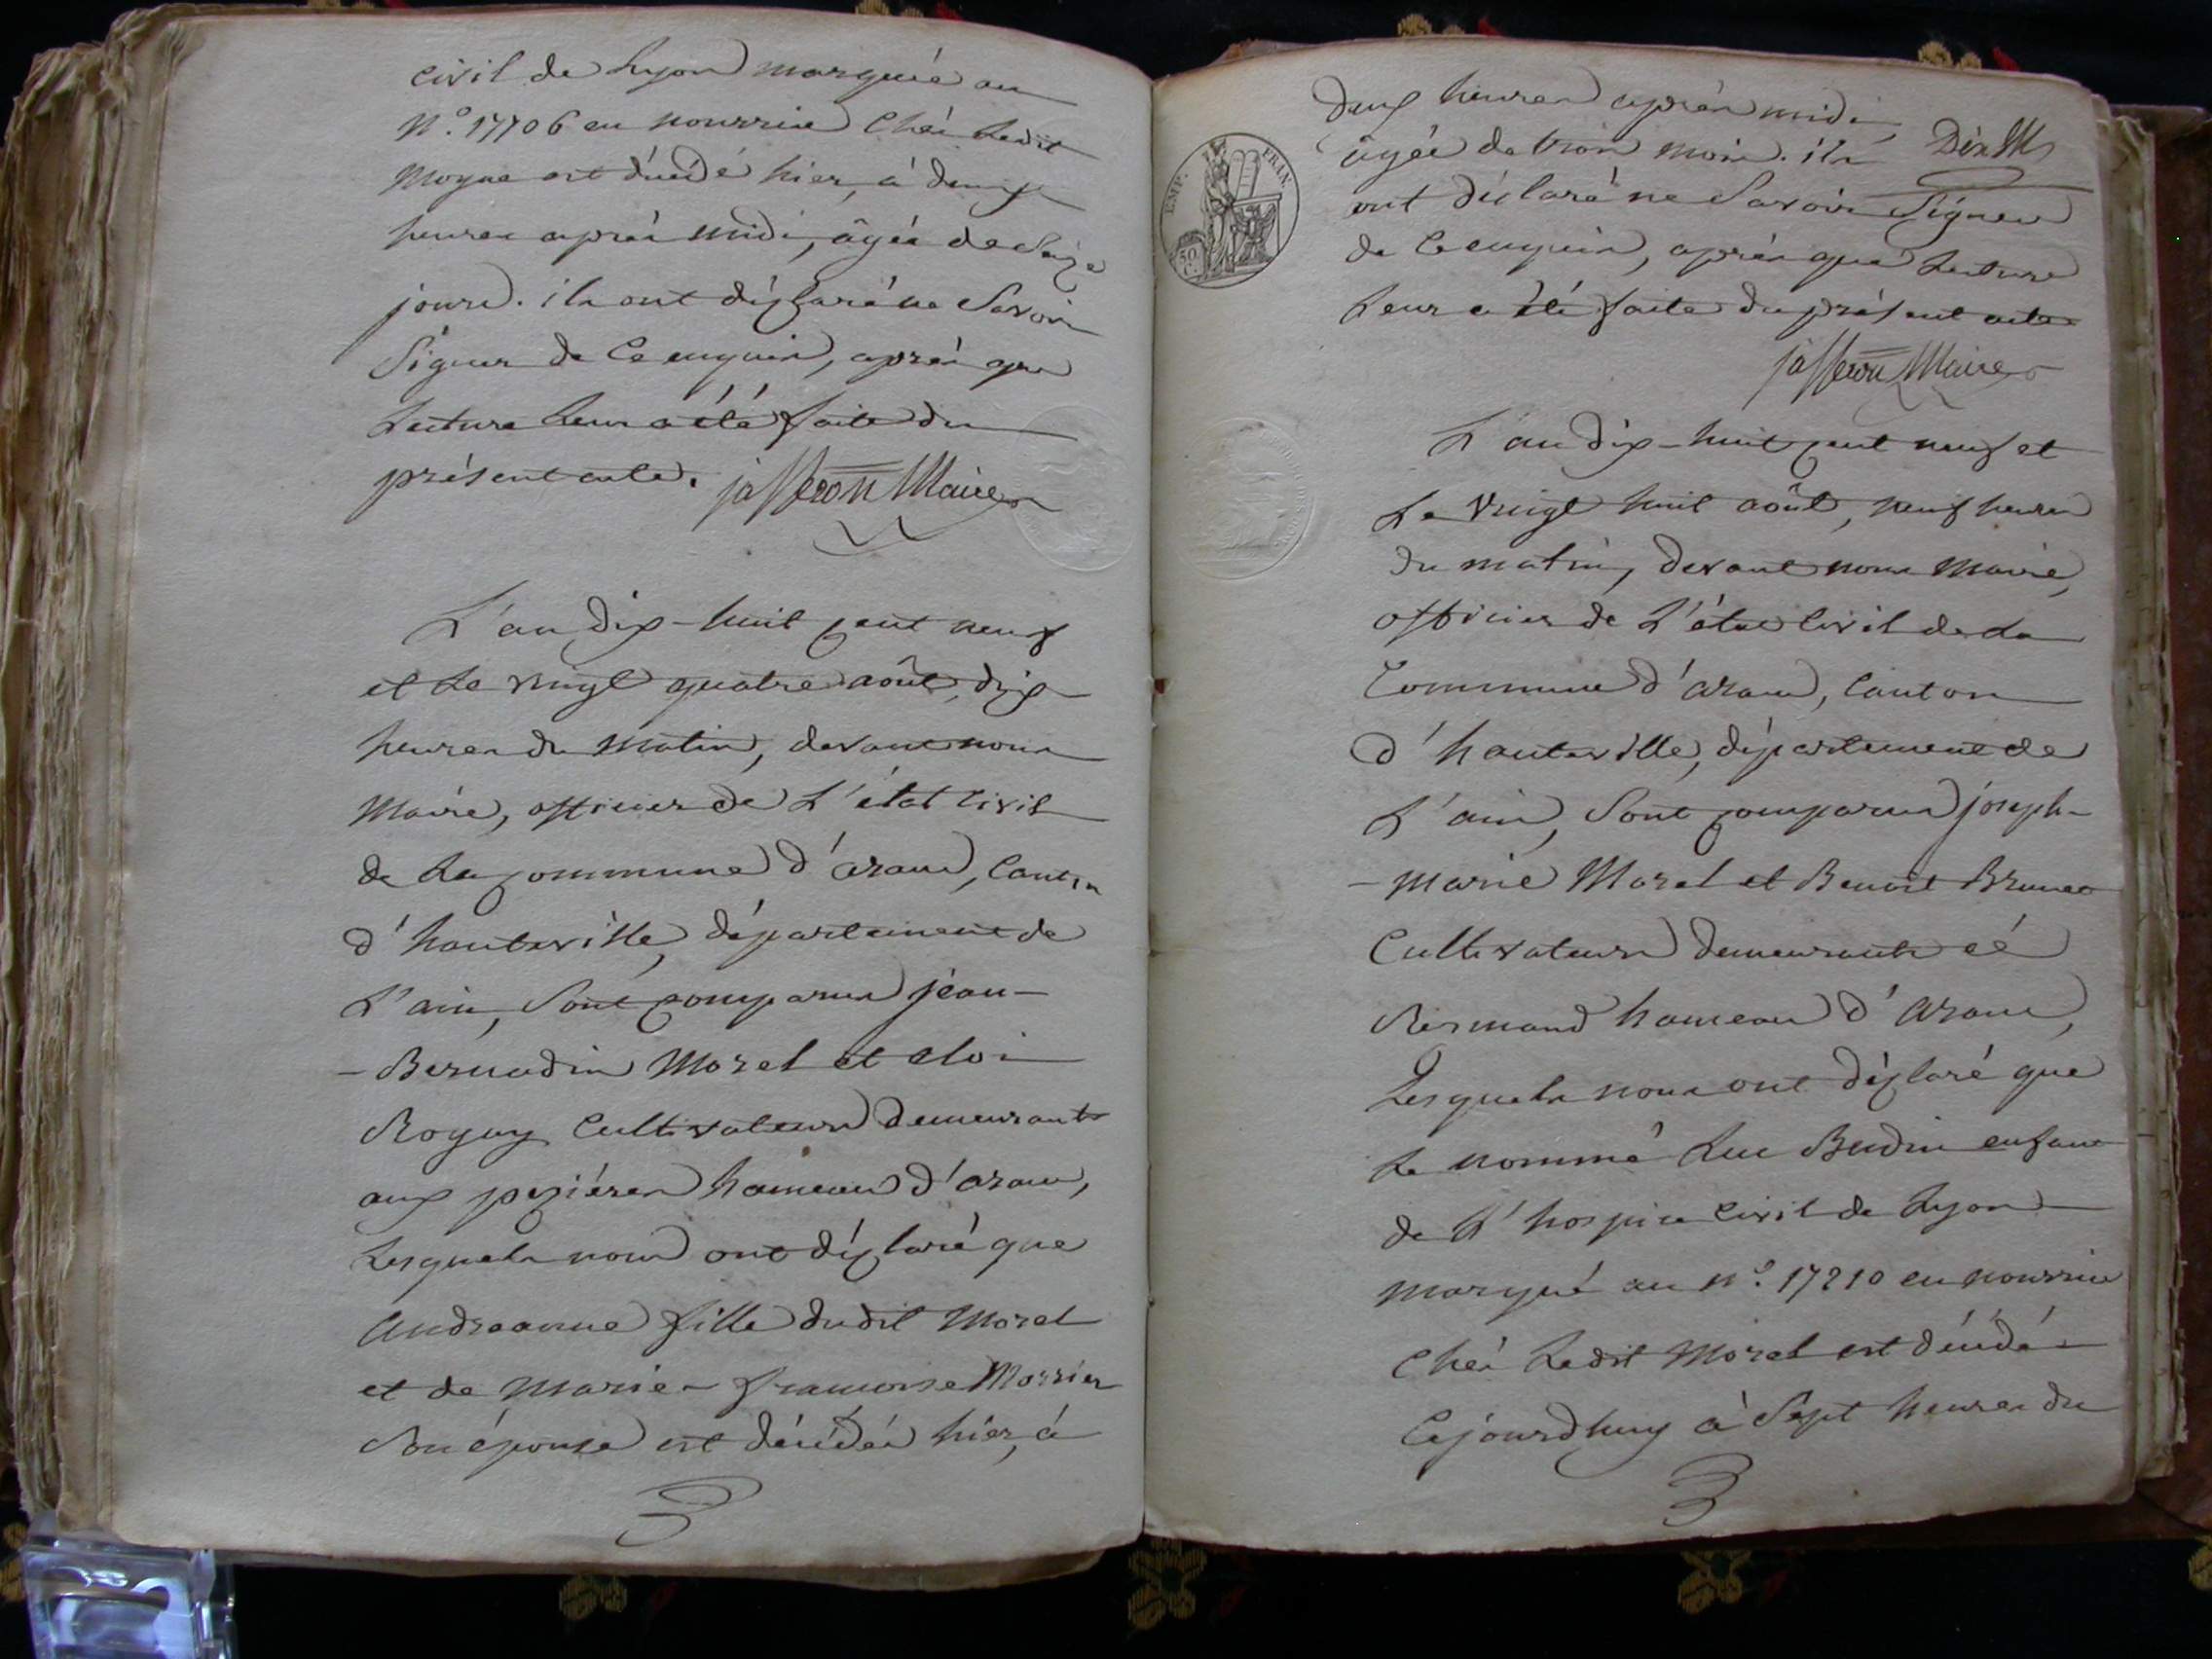 civil de Lyon marquée au
N.º 17706 en nourrice chés Ledit
Moyne est décédé hier, à deux
heures après midi, âgée de Seize
jours. ils ont déclaré ne Savoir
Signer de ce enquis, après que
Lecture Leur a été faite du
présent acte. jasseron Maire
L'an dix-huit cent neuf
et Le vingt quatre août, dix
heures du matin, devant nous
Maire, officier de L'état civil
de La commune d'aranc, Canton
d'hauteville, département de
L'ain, Sont comparus jean-
-Bernadin Morel et eloi
cultivateurs demeurants
aux pézières hameau d'aranc,
Lesquels nous ont déclaré que
Andréanne fille dudit Morel
et de Marie-françoise
Son épouse est décédée hier, à
deux heures après midi,
âgée de trois mois. ils
ont déclaré ne Savoir Signer
de ce enquis, après que Lecture
Leur a été faite du présent acte
jasseron Maire
EMP. FRAN.
50 C.
L'an dix-huit cent neuf et
Le vingt huit août, neuf heures
du matin, devant nous Maire,
officier de L'état civil de La
Commune d'aranc, Canton
d'hauteville, département de
L'ain, Sont comparus joseph-
-marie Morel et Benoit Brunet
Cultivateurs demeurants à
Résinand hameau d'Aranc,
Lesquels nous ont déclaré que
Le nommé Luc Budin enfant
de L'hospice civil de Lyon
marqué au N.º 17210 en nourrice
chés Ledit Morel est décédé
cejourdhuy à Sept heures du